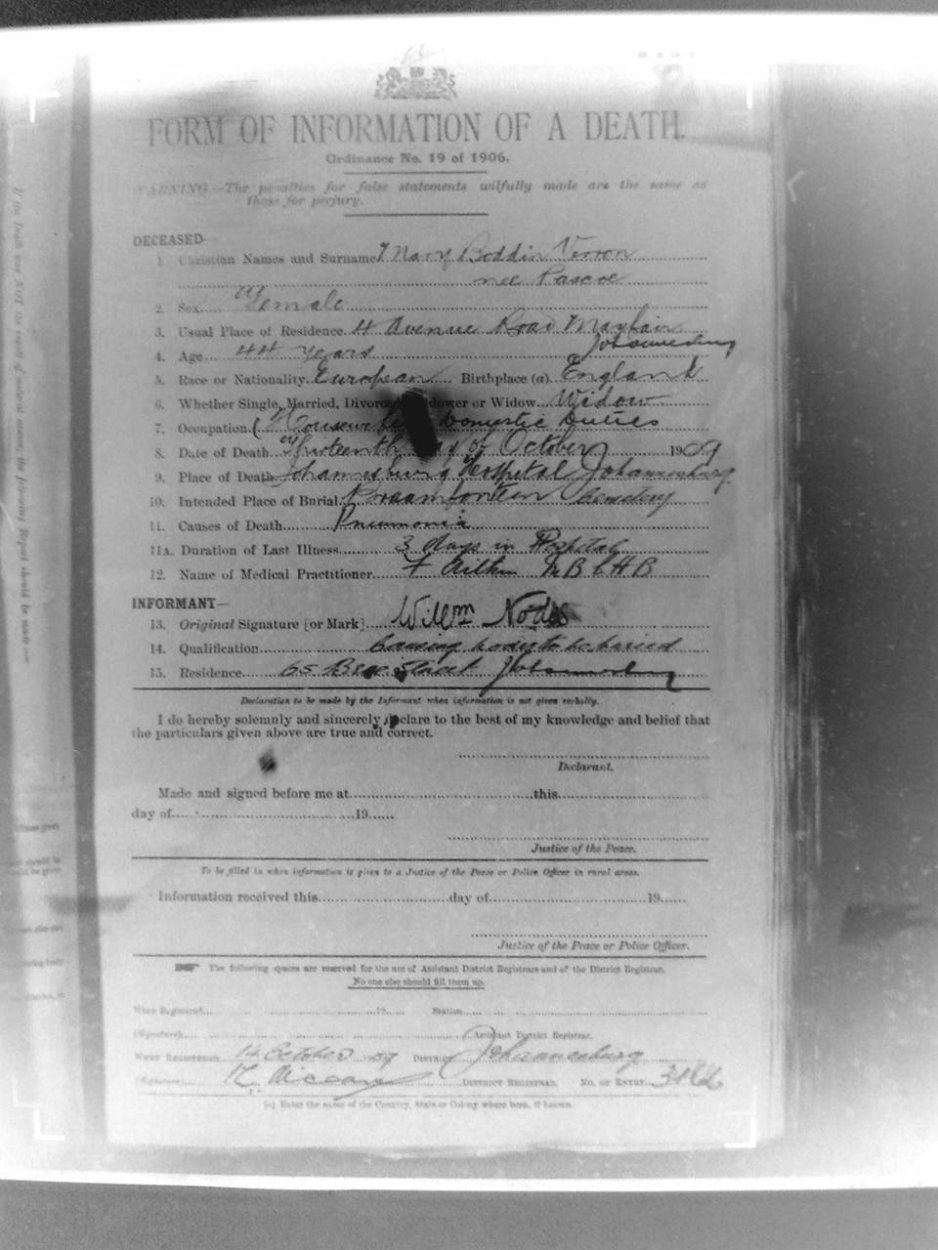 FORM OF INFORMATION OF A DEATH.
Ordinance No. 19 of 1906.
WARNING.—The penalties for false statements wilfully made are the same as
those for perjury.
DECEASED—
1. Christian Names and Surname Mary Boddin Verron
nee Pascoe
2. Sex Female
3. Usual Place of Residence. 4 Avenue Road Mayfair
Johannesburg
4. Age 44 years
5. Race or Nationality. European Birthplace (a) England
6. Whether Single, Married, Divorced, Widower or Widow Widow
7. Occupation. Domestic Duties
8. Date of Death Thirteenth day of October 1909
9. Place of Death Johannesburg Hospital Johannesburg
10. Intended Place of Burial Braamfontein Cemetery
11. Causes of Death Pneumonia
11A. Duration of Last Illness 3 days in Hospital
12. Name of Medical Practitioner F Aitken M B
INFORMANT—
13. Original Signature [or Mark] Willm
14. Qualification Causing body to be buried
15. Residence 65 Street Johannesburg
Declaration to be made by the Informant when information is not given verbally.
I do hereby solemnly and sincerely declare to the best of my knowledge and belief that
the particulars given above are true and correct.
Declarant.
Made and signed before me at this
day of 19
Justice of the Peace.
To be filled in when information is given to a Justice of the Peace or Police Officer in rural areas.
Information received this day of 19
Justice of the Peace or Police Officer.
The following spaces are reserved for the use of Assistant District Registrars and of the District Registrar.
No one else should fill them up.
When Registered 19 Station
(Signature) Assistant District Registrar.
When Registered 14 October 09 District Johannesburg
(Signature) District Registrar. No. of Entry
(a) Enter the name of the Country, State or Colony where born, if known.